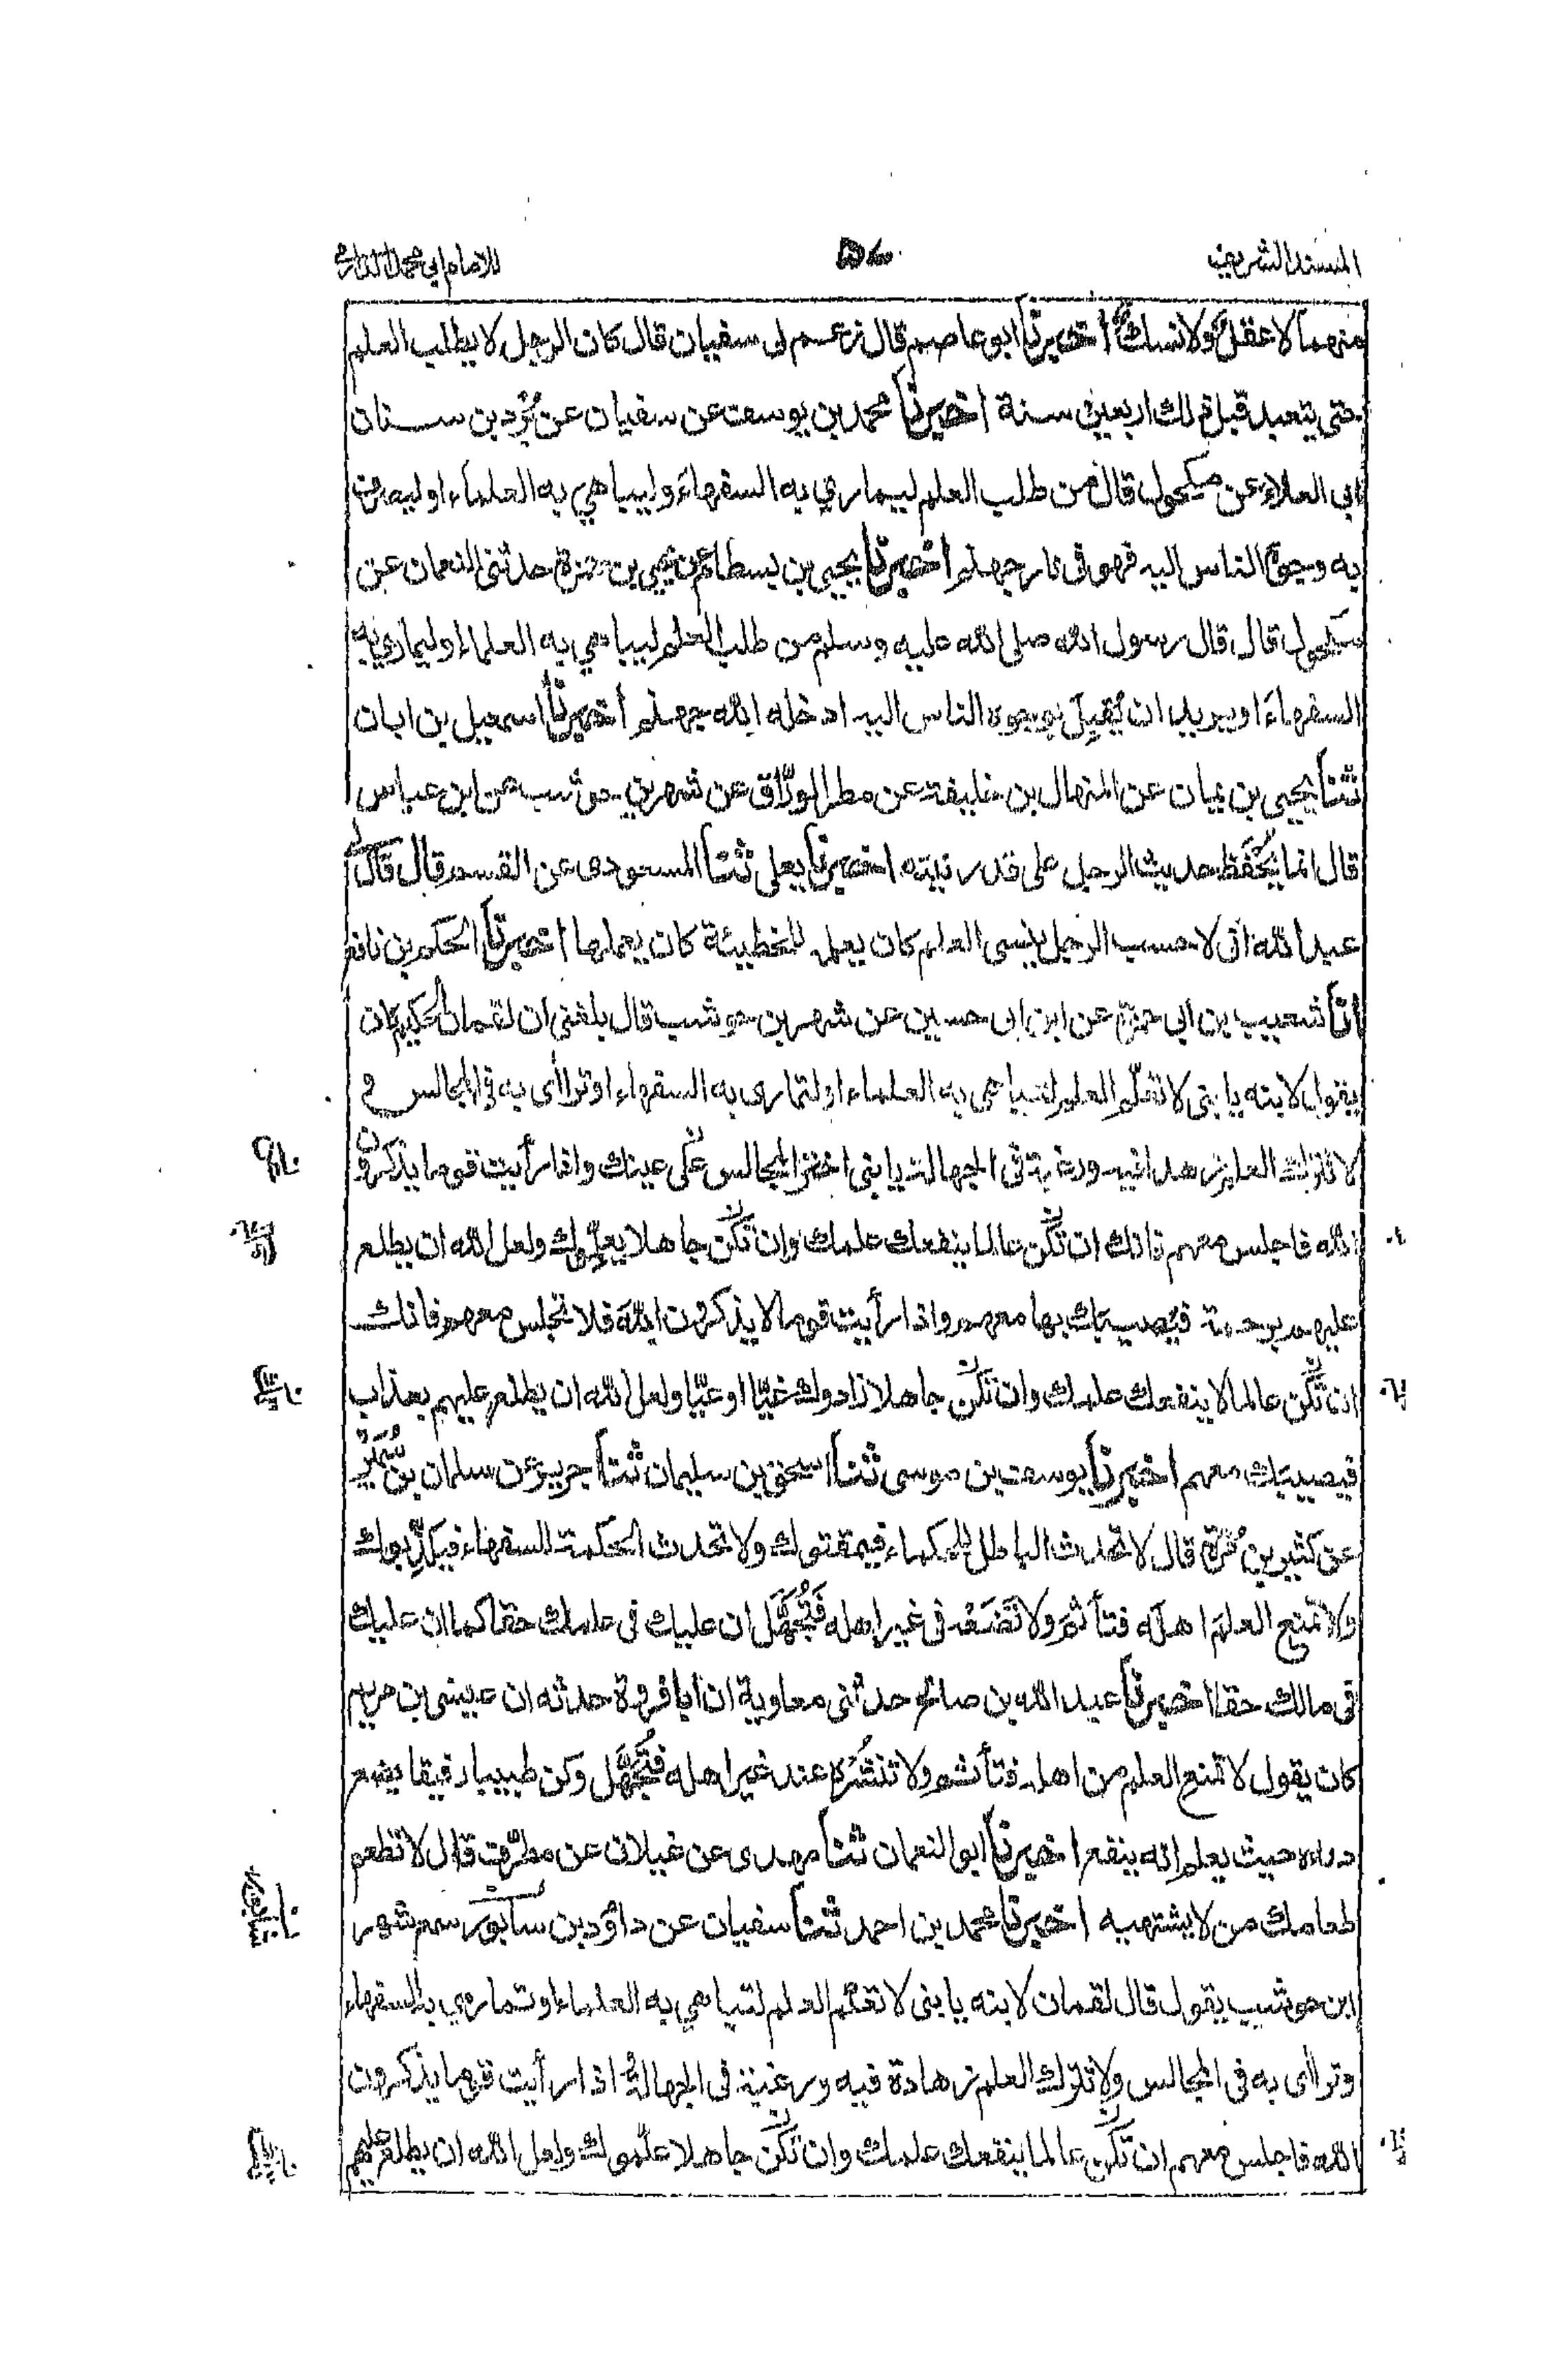 المسند الشريف
للامام ابي محمد الدارمي
منهما لا عقل ولا نسك اخبرنا ابو عاصم قال زعم لى سفيان قال كان الرجل لا يطلب العلم
حتى يتعبد قبل ذلك اربعين سنة اخبرنا محمد بن يوسف عن سفيان عن بُرْد بن سنان
ابى العلاء عن مكحول قال من طلب العلم ليمارى به السفهاءَ وليباهي به العلماء او ليصرف
به وجوه الناس اليه فهو فى نار جهنم اخبرنا يحيى بن بسطام عن يحيى بن حمزة حدثنى النعمان عن
مكحول قال قال رسول الله صلى الله عليه وسلم من طلب العلم ليباهي به العلماء او ليمارى به
السفهاءَ او يريد ان يُقبِلَ بوجوه الناس اليه ادخله الله جهنم اخبرنا اسمعيل بن ابان
ثنا يحيى بن يمان عن المنهال بن خليفة عن مطر الورّاق عن شهر بن حوشب عن ابن عباس
قال انما يُحْفَظ حديث الرجل على قدر نيته اخبرنا يعلى ثنا المسعودى عن القسم قال قال لى
عبد الله انى لاحسب الرجل ينسى العلم كان يعلمه للخطيئة كان يعملها اخبرنا الحكم بن نافع
انا شعيب بن ابي حمزة عن ابن ابى حسين عن شهر بن حوشب قال بلغنى ان لقمان الحكيم كان
يقول لابنه يا بنى لا تعلّم العلم لتباهى به العلماء او لتمارى به السفهاء او تراأى به فى المجالس و
لا تترك العلم زهدا فيه ورغبة فى الجهالة يا بنى اختر المجالس على عينك واذا رأيت قوما يذكرون
الله فاجلس معهم فانك ان تكن عالما ينفعك علمك وان تكن جاهلا يعلّموك ولعل الله ان يطلع
عليهم برحمة فيصيبك بها معهم واذا رأيت قوما لا يذكرون اللهَ فلا تجلس معهم فانك
ان تكن عالما لا ينفعك علمك وان تكن جاهلا زادوك غيّا او عيّا ولعل الله ان يطلع عليهم بعذاب
فيصيبك معهم اخبرنا يوسف بن موسى ثنا اسحق بن سليمان ثنا جرير عن سلمان بن سُمَير
عن كثير بن مُرّة قال لا تحدث الباطل للحكماء فيمقتوك ولا تحدث الحكمة للسفهاء فيكذّبوك
ولا تمنع العلمَ اهلَه فتأثمَ ولا تَضَعْه فى غير اهله فَتُجَهَّل ان عليك فى علمك حقا كما ان عليك
فى مالك حقا اخبرنا عبد الله بن صالح حدثنى معاوية ان ابا فروة حدثه ان عيسى بن مريم
كان يقول لا تمنع العلم من اهله فتأثم ولا تنشُره عند غير اهله فتُجَهَّل وكن طبيبا رفيقا يضع
دواءه حيث يعلم انه ينفع اخبرنا ابو النعمان ثنا مهدى عن غيلان عن مطرّف قال لا تطعم
طعامك من لا يشتهيه اخبرنا محمد بن احمد ثنا سفيان عن داؤد بن سابور سمع شهر
ابن حوشب يقول قال لقمان لابنه يا بنى لا تعلّم العلم لتباهي به العلماء او تماري به السفهاء
وتراأى به فى المجالس ولا تترك العلم زهادة فيه ورغبة فى الجهالة اذا رأيت قوما يذكرون
الله فاجلس معهم ان تكن عالما ينفعك علمك وان تكن جاهلا علّموك ولعل الله ان يطلع عليهم